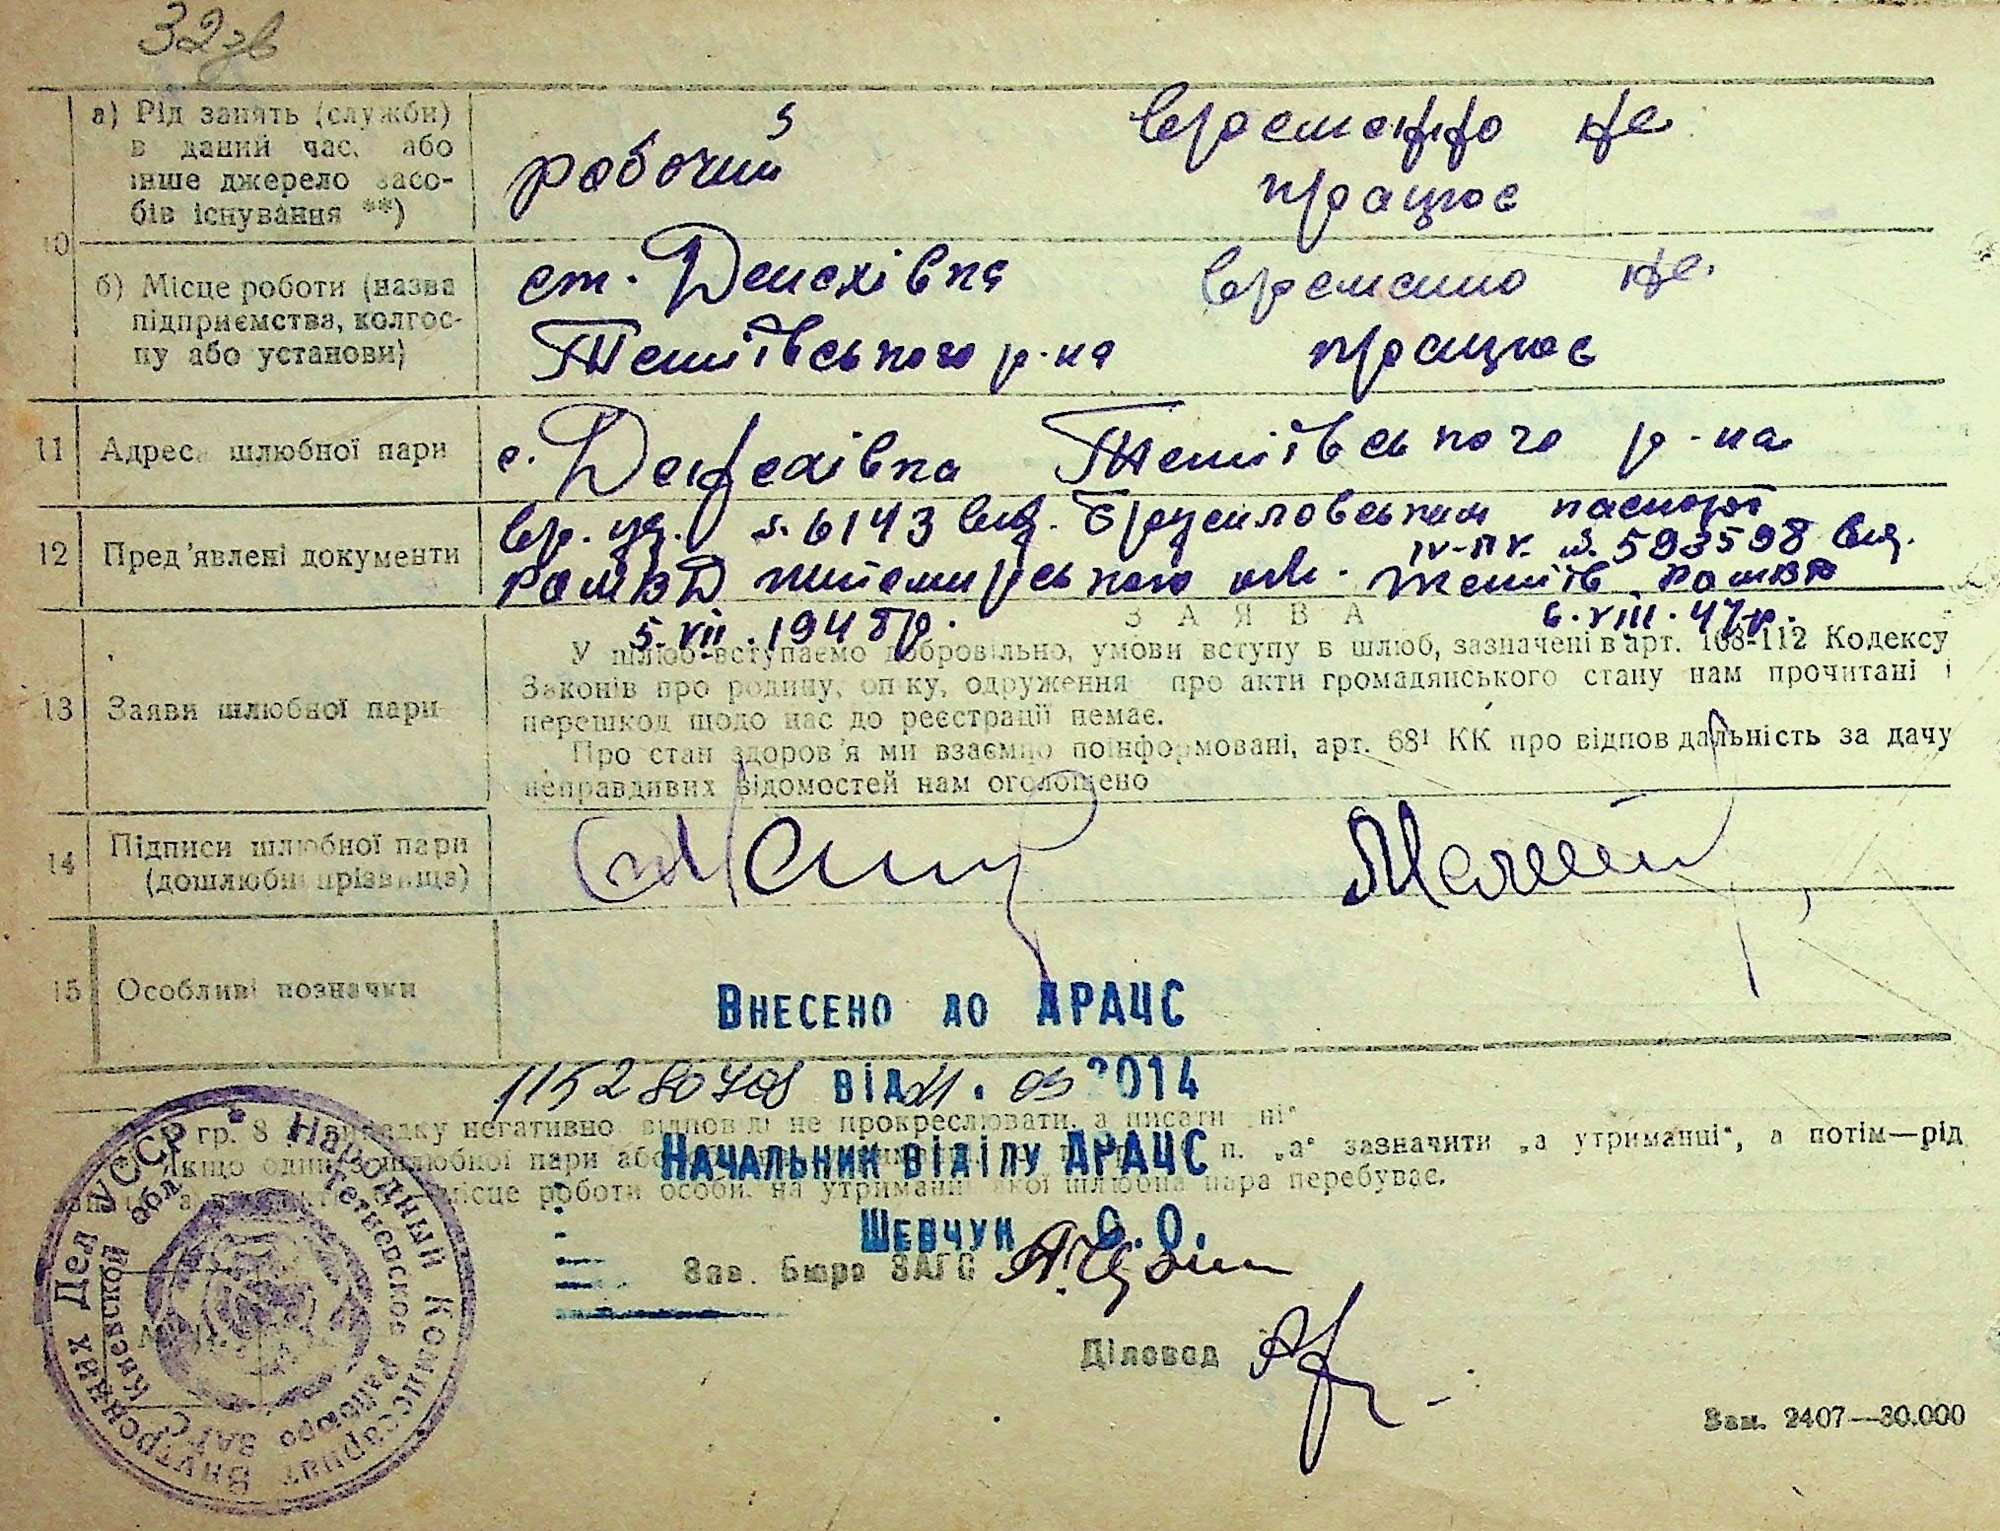 32зв
а) Рід занять (служби)
в даний час, або
інше джерело засо-
бів існування **)
робочий
временно не
працює
10
б) Місце роботи (назва
підприємства, колгос-
пу або установи)
ст. Денхівка
Тетіївського р-на
временно не
працює
11 Адреса шлюбної пари
с. Денхівка Тетіївського р-на
12 Пред'явлені документи
вр. уд. 6143 вид. Брусиловським
РОМВД Житомирського обл.
5.VII.1948р.
паспорт
IV-ПК № 593598 вид.
Тетіїв РОМВД
6.VIII.47р.
13 Заяви шлюбної пари
ЗАЯВА
У шлюб вступаємо добровільно, умови вступу в шлюб, зазначені в арт. 108-112 Кодексу
Законів про родину, опіку, одруження про акти громадянського стану нам прочитані і
перешкод щодо нас до реєстрації немає.
Про стан здоров'я ми взаємно поінформовані, арт. 68¹ КК про відповідальність за дачу
неправдивих відомостей нам оголошено
14 Підписи шлюбної пари
(дошлюбні прізвища)
15 Особливі позначки
Внесено до ДРАЦС
від 2014
гр. 8 випадку негативної відповіді не прокреслювати, а писати „ні“
Якщо один з шлюбної пари або п. „а“ зазначити „а утриманці“, а потім—рід
місце роботи особи, на утриманні якої шлюбна пара перебуває.
Начальник відділу ДРАЦС
Шевчук О.О.
Зав. Бюро ЗАГС
Діловод
Народный Комиссариат Внутренних Дел УССР
Тетиевское Райбюро ЗАГС Киевской обл.
Зам. 2407—30.000